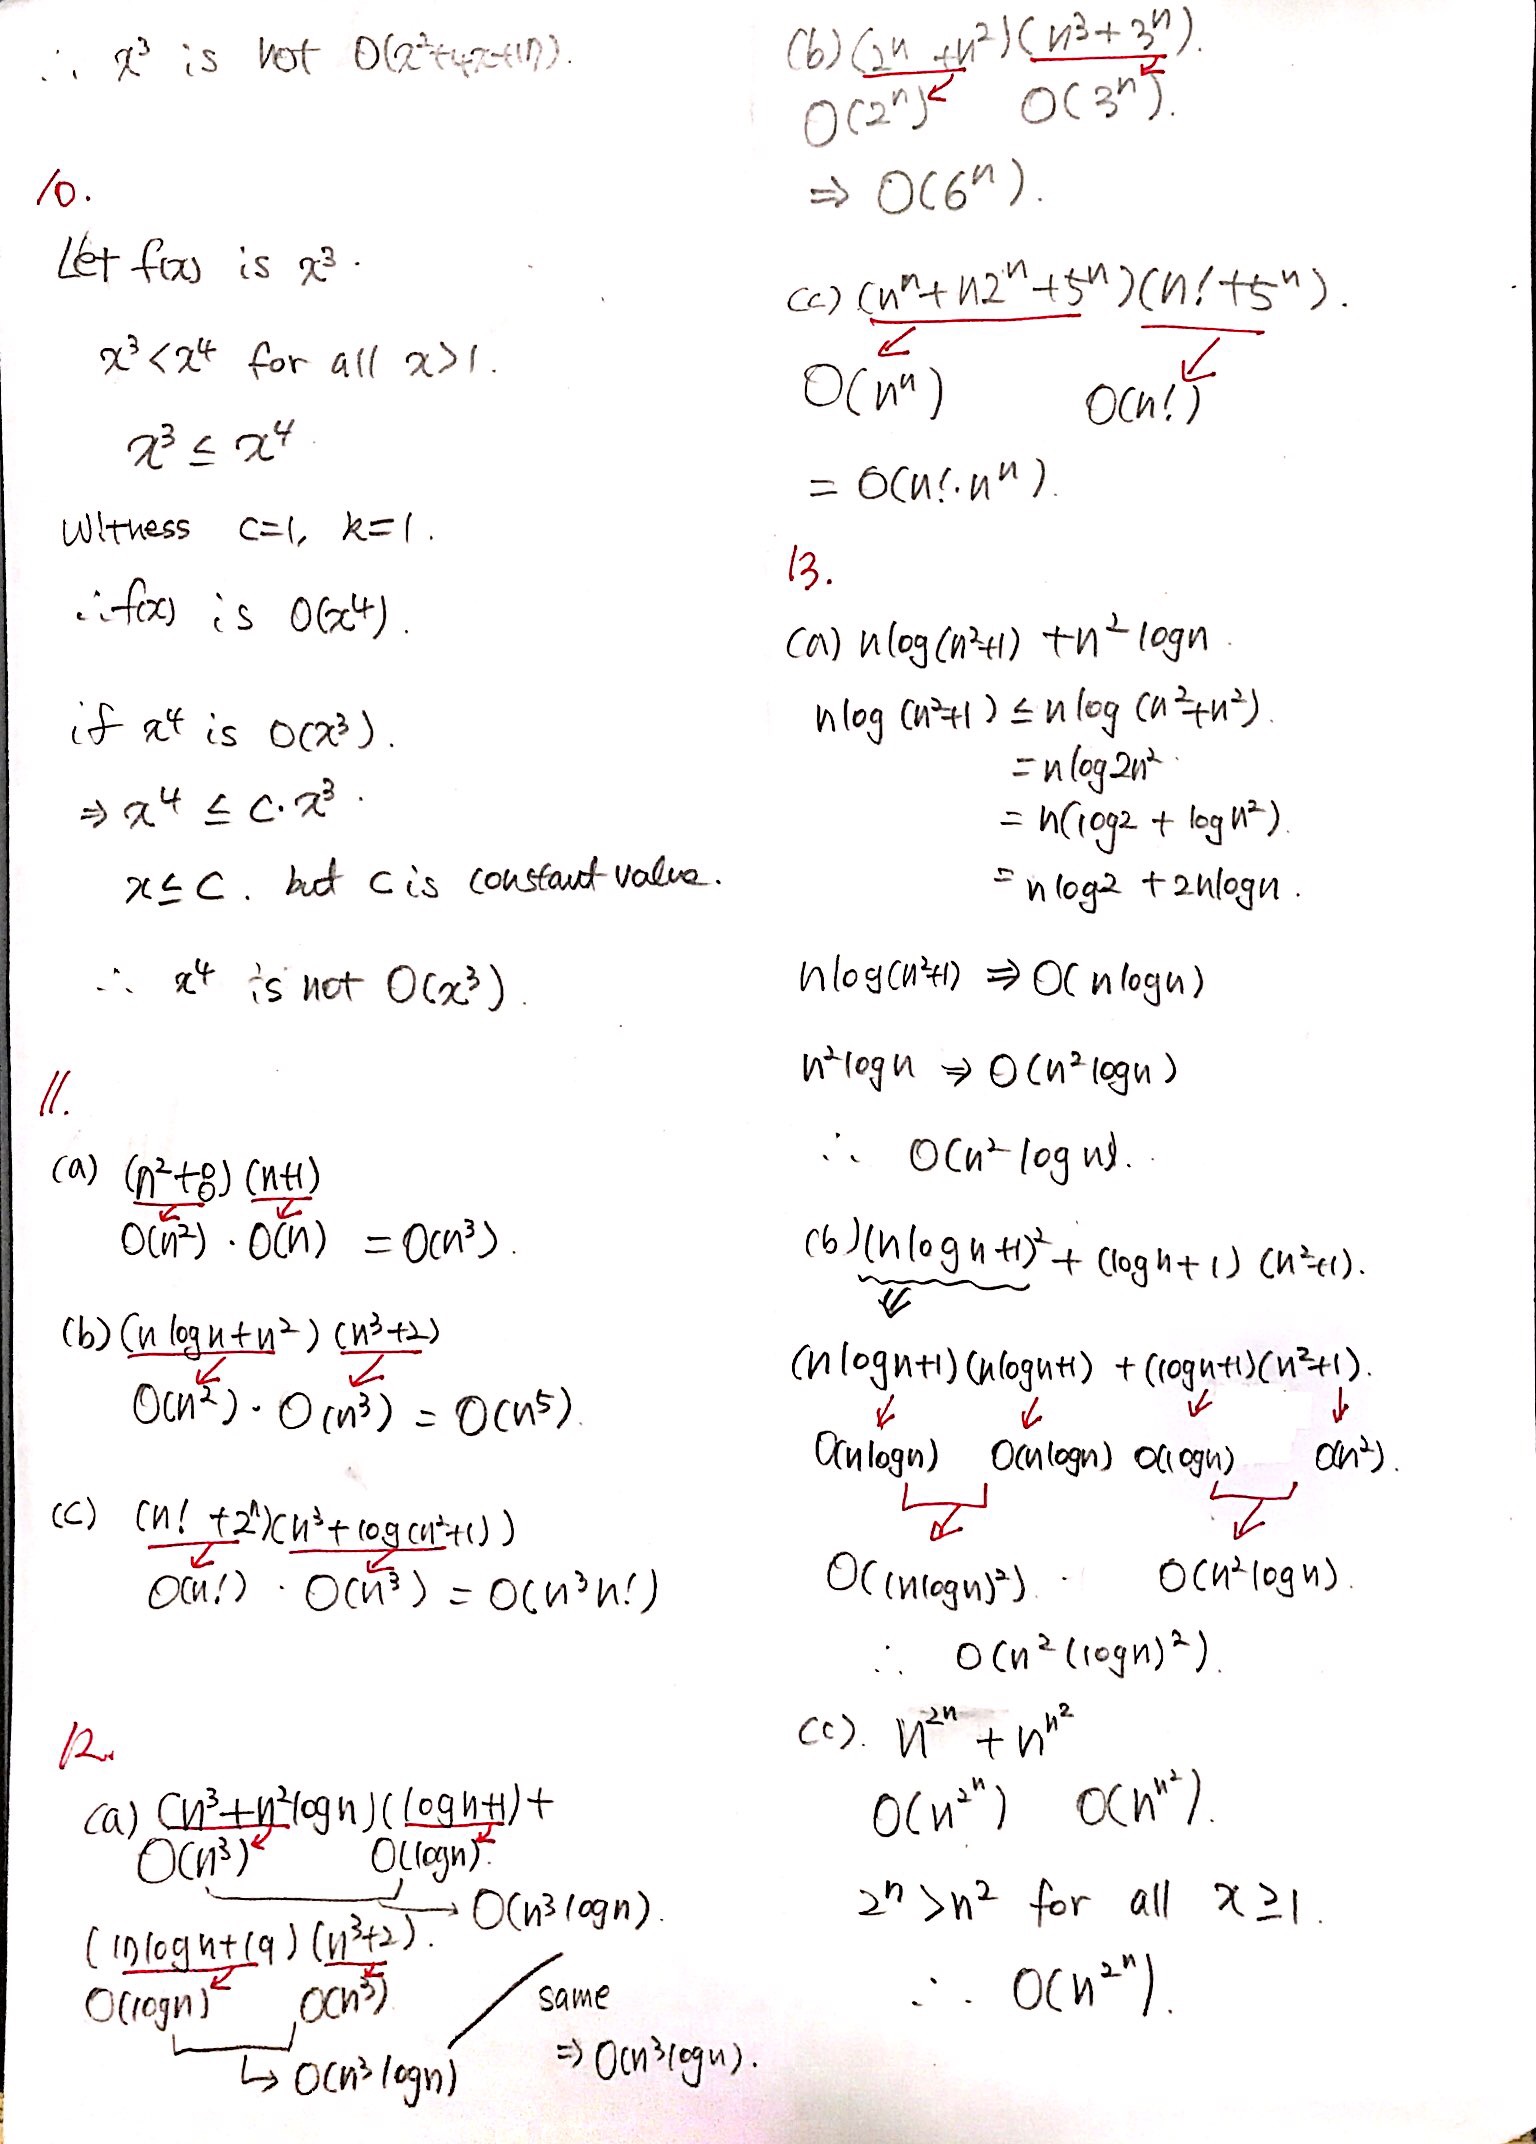 ∴ x³ is not O(x²+4x+17).
10.
Let f(x) is x³.
x³ < x⁴ for all x>1.
x³ ≤ x⁴
Witness C=1, k=1.
∴ f(x) is O(x⁴).
if x⁴ is O(x³).
⇒ x⁴ ≤ C·x³.
x ≤ C. but C is constant value.
∴ x⁴ is not O(x³).
11.
(a) (n²+8)(n+1)
O(n²)·O(n) = O(n³).
(b) (n log n+n²)(n³+2)
O(n²)·O(n³) = O(n⁵).
(c) (n! +2ⁿ)(n³+log(n²+1))
O(n!)·O(n³) = O(n³n!)
12.
(a) (n³+n²logn)(logn+1)+
O(n³) O(logn).
→ O(n³logn).
(17logn+19)(n³+2).
O(logn) O(n³)
↳ O(n³logn)
same
⇒ O(n³logn).
(b) (2ⁿ+n²)(n³+3ⁿ).
O(2ⁿ) O(3ⁿ).
⇒ O(6ⁿ).
(c) (nⁿ+n2ⁿ+5ⁿ)(n!+5ⁿ).
O(nⁿ) O(n!)
= O(n!·nⁿ).
13.
(a) nlog(n²+1) +n²logn.
nlog(n²+1) ≤ nlog(n²+n²).
= nlog2n².
= n(log2 + logn²).
= nlog2 + 2nlogn.
nlog(n²+1) ⇒ O(nlogn)
n²logn ⇒ O(n²logn)
∴ O(n²logn).
(b) (nlogn+1)² + (logn+1)(n²+1).
(nlogn+1)(nlogn+1) + (logn+1)(n²+1).
O(nlogn) O(nlogn) O(logn) O(n²).
O((nlogn)²). O(n²logn).
∴ O(n²(logn)²).
(c). n^2^n + n^n^2
O(n^2^n) O(n^n^2).
2ⁿ>n² for all x≥1.
∴ O(n^2^n).